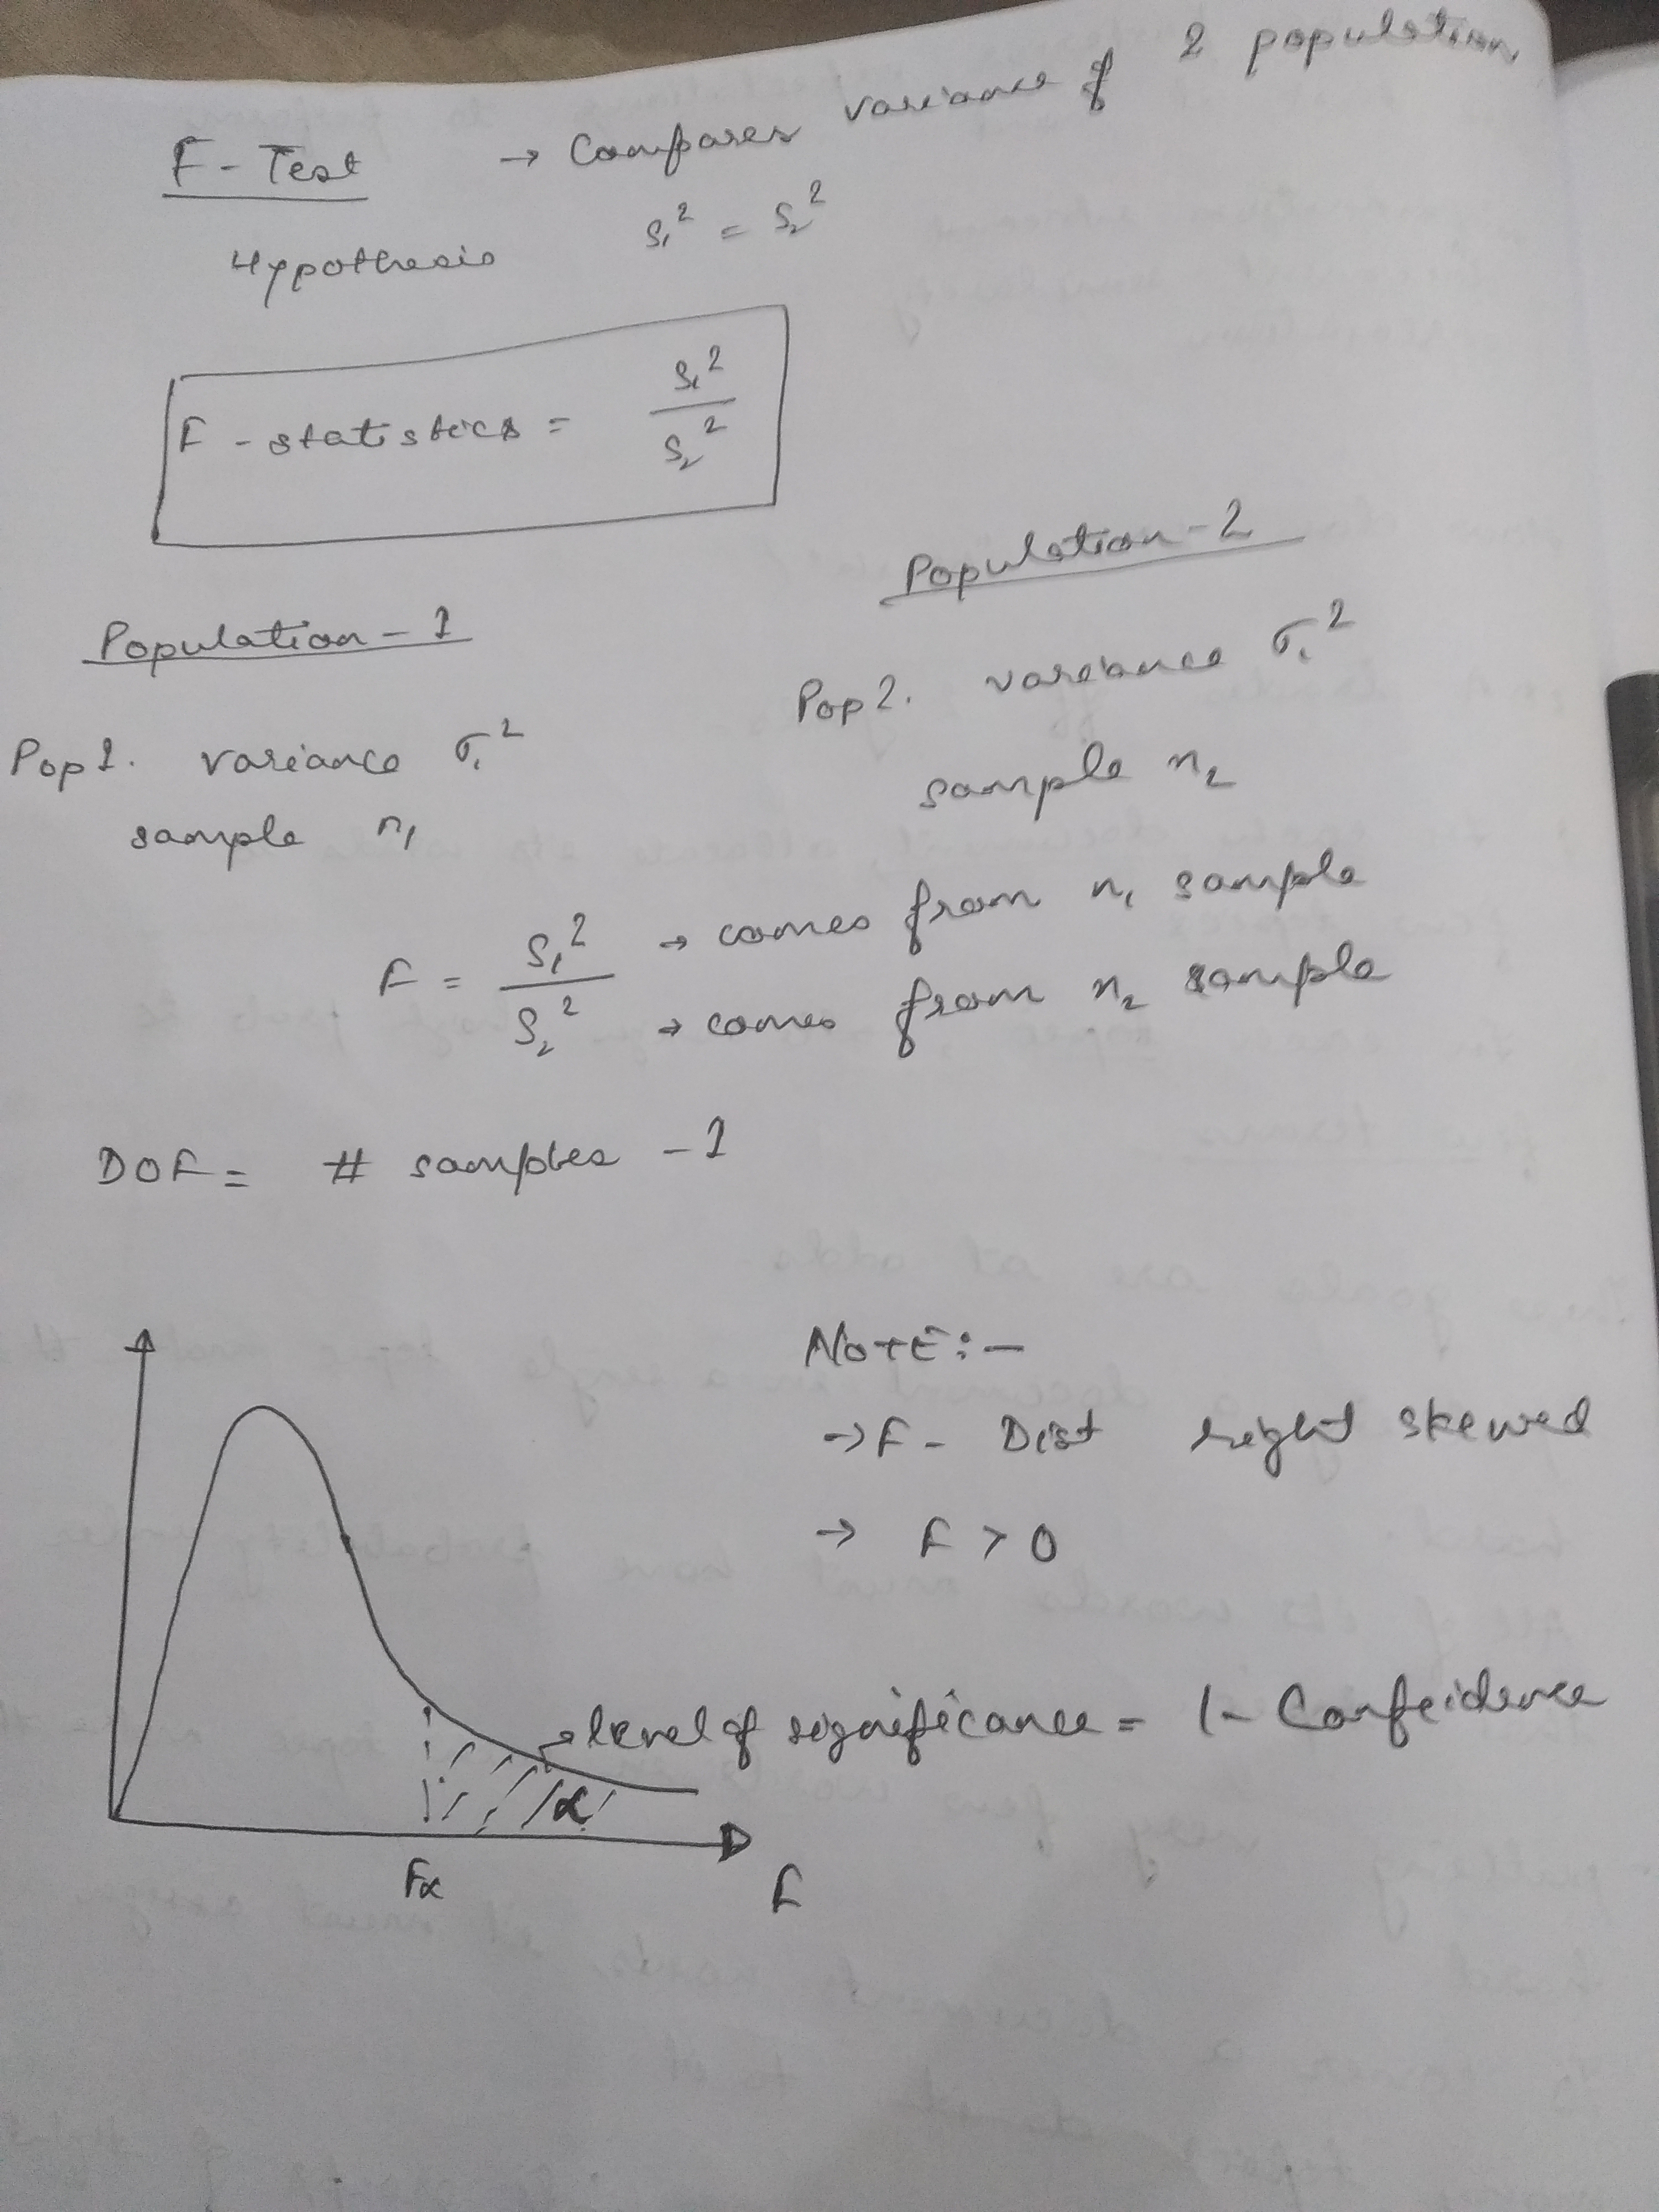 F - Test → Compares variance of 2 population
Hypothesis S₁² = S₂²
F - statistics = S₁² / S₂²
Population - 1
Pop 1. variance σ₁²
sample n₁
Population - 2
Pop 2. variance σ₁²
sample n₂
F = S₁² → comes from n₁ sample
S₂² → comes from n₂ sample
DOF = # samples - 1
NOTE :-
→ F - Dist right skewed
→ F > 0
level of significance = 1 - Confeidence
α
Fα
F